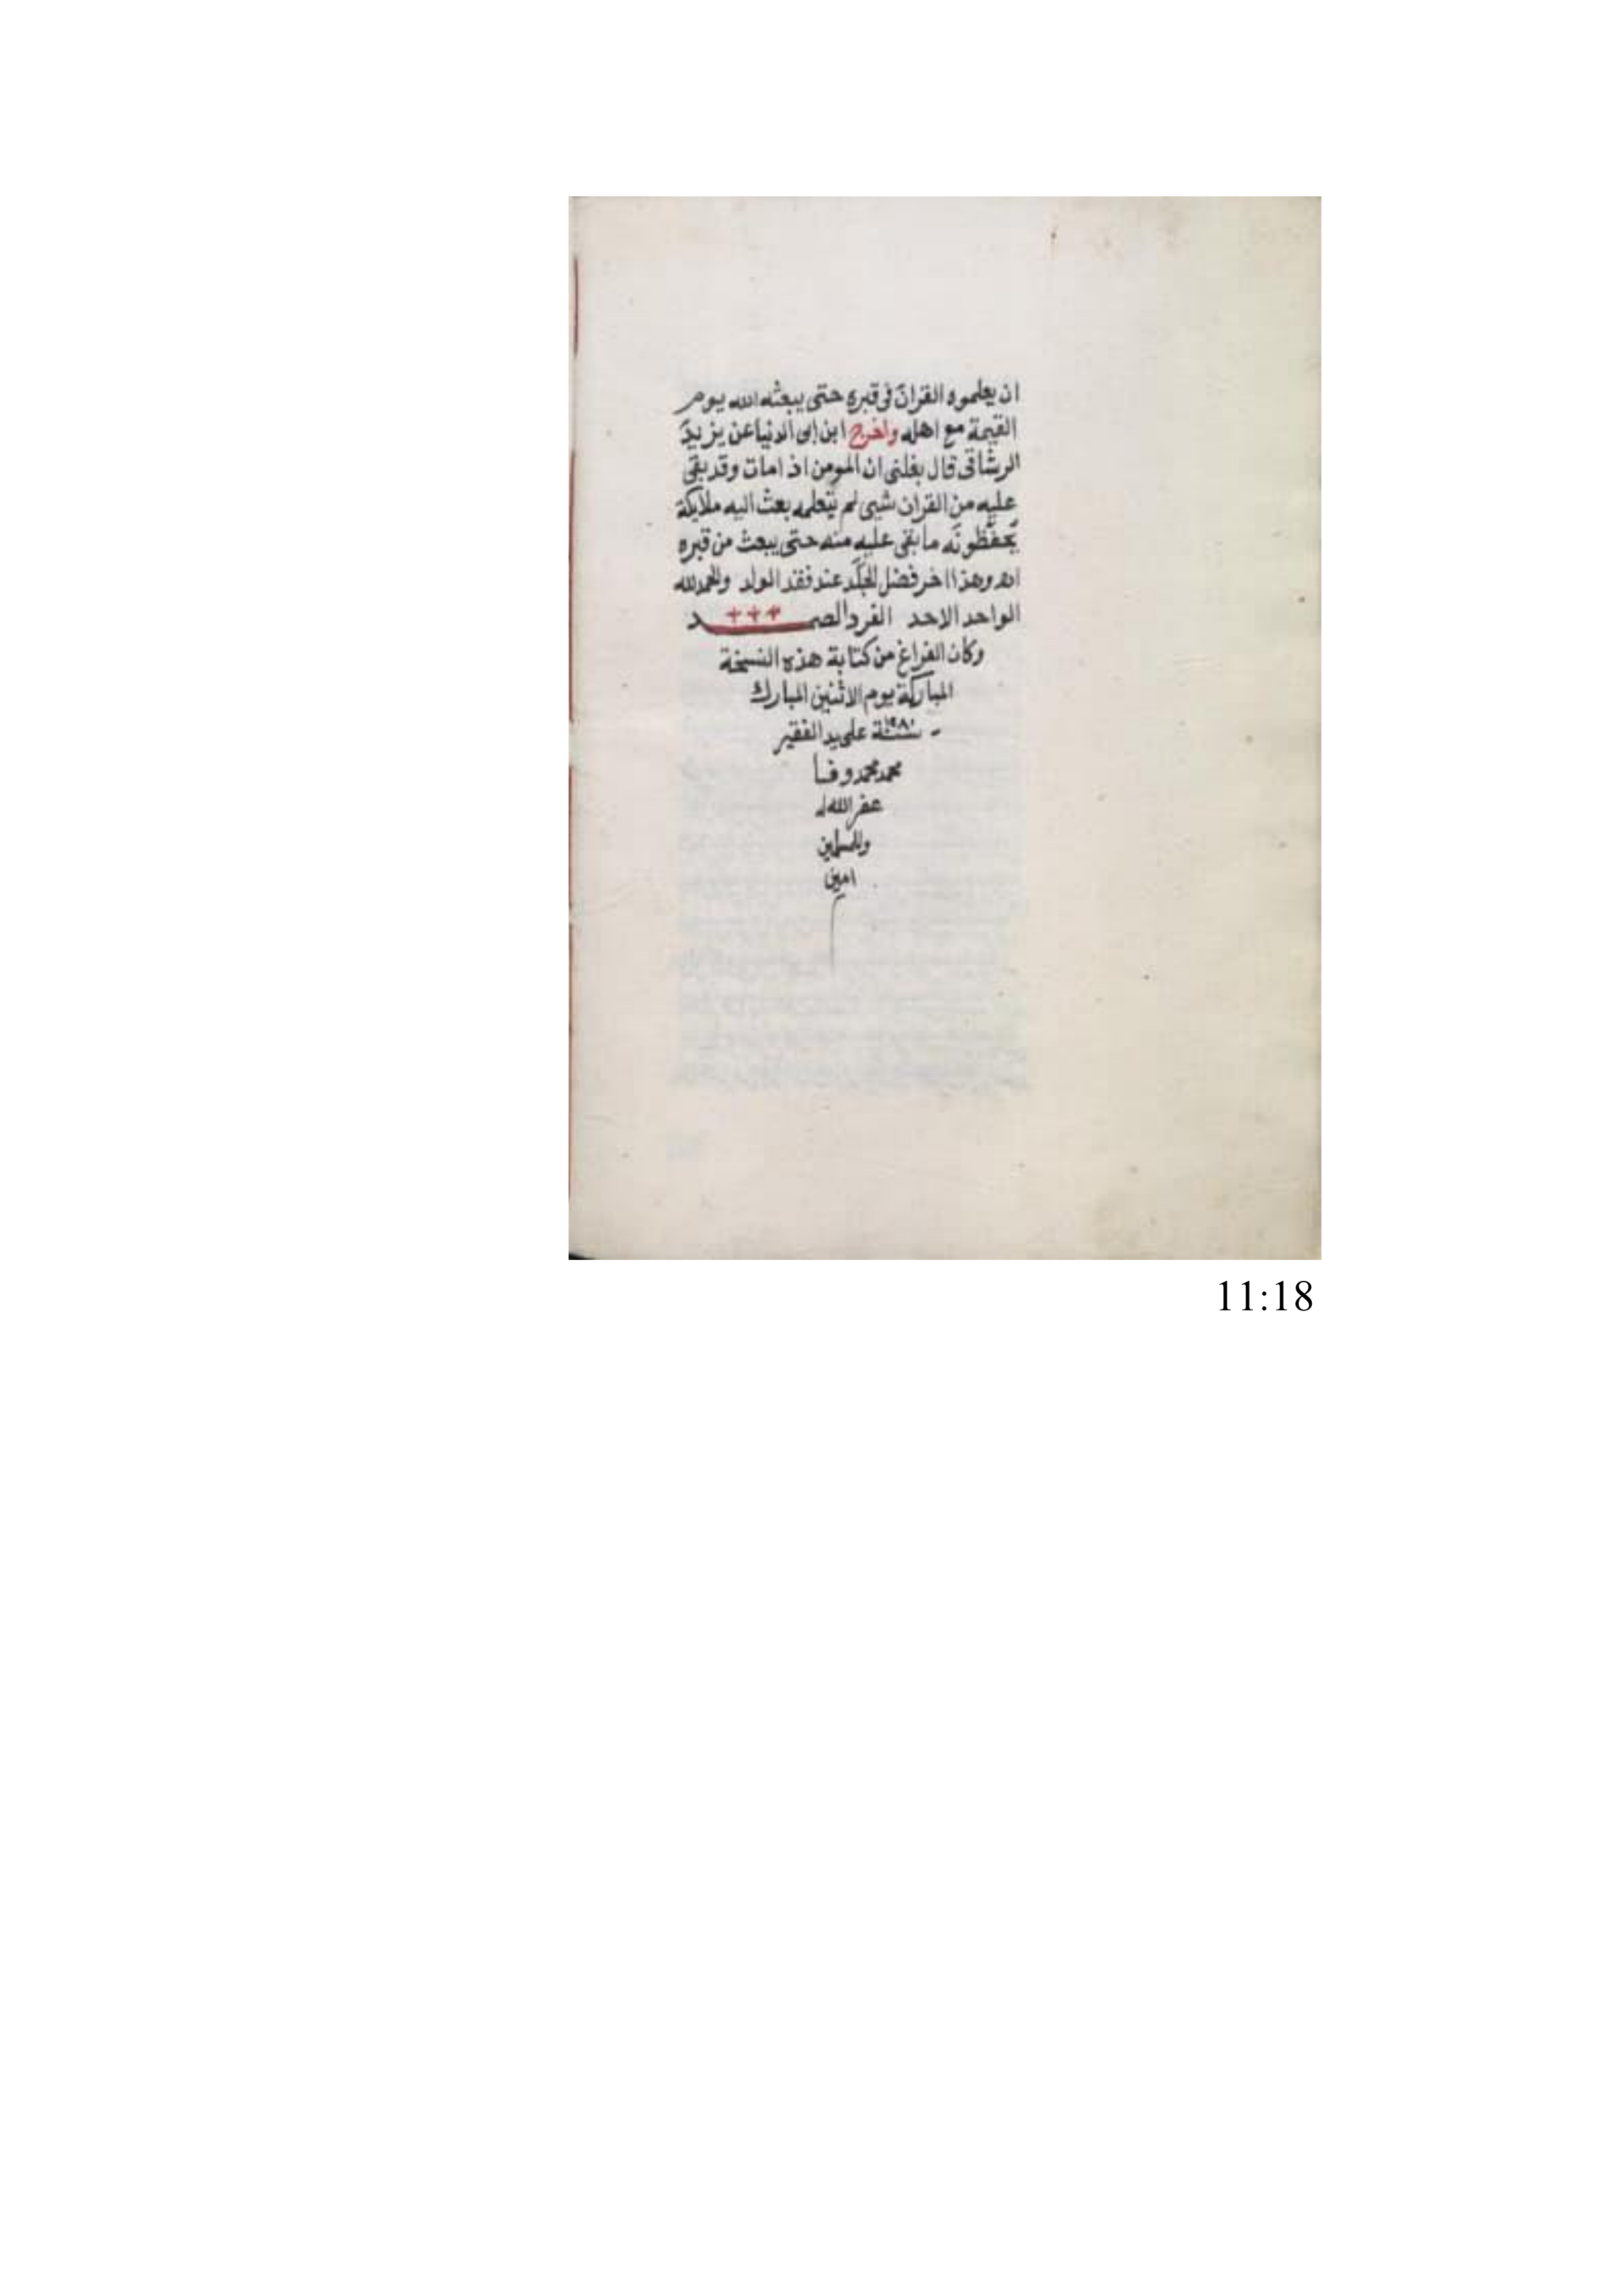 ان يعلموه القران فى قبره حتى يبعثه الله يوم
القيمة مع اهله واخرج ابن ابى الدنيا عن يزيد
الرشاقى قال بغلنى ان المومن اذ امات وقد بقى
عليه من القران شيى لم يتعلمه بعث اليه ملايكة
يحفظونه ما بقى عليه منه حتى يبعث من قبره
اه وهذا اخر فضل الجلد عند فقد الولد والحمد لله
الواحد الاحد الفرد الصمد
وكان الفراغ من كتابة هذه النسخة
المباركة يوم الاثنين المبارك
سنة على يد الفقير
محمد محمد وفا
غفر الله له
وللمسلمين
امين
11:18